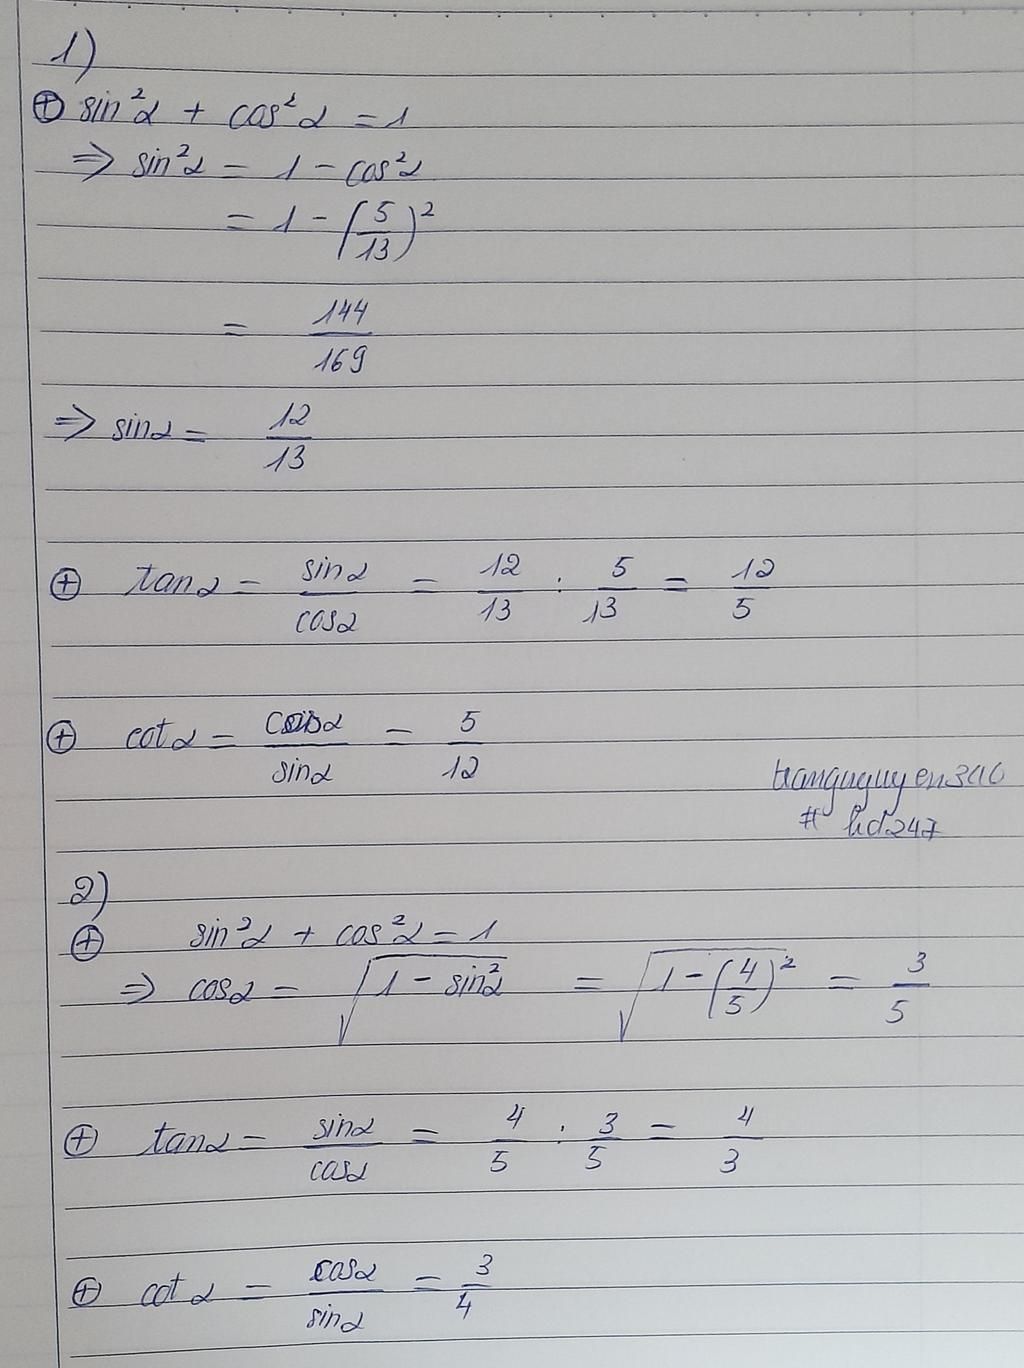 1)
⊕ sin²α + cos²α = 1
⇒ sin²α = 1 - cos²α
= 1 - (5/13)²
= 144/169
⇒ sinα = 12/13
⊕ tanα = sinα/cosα = 12/13 : 5/13 = 12/5
⊕ cotα = cosα/sinα = 5/12
# hd247
2)
⊕ sin²α + cos²α = 1
⇒ cosα = √(1 - sin²α) = √(1 - (4/5)²) = 3/5
⊕ tanα = sinα/cosα = 4/5 : 3/5 = 4/3
⊕ cotα = cosα/sinα = 3/4